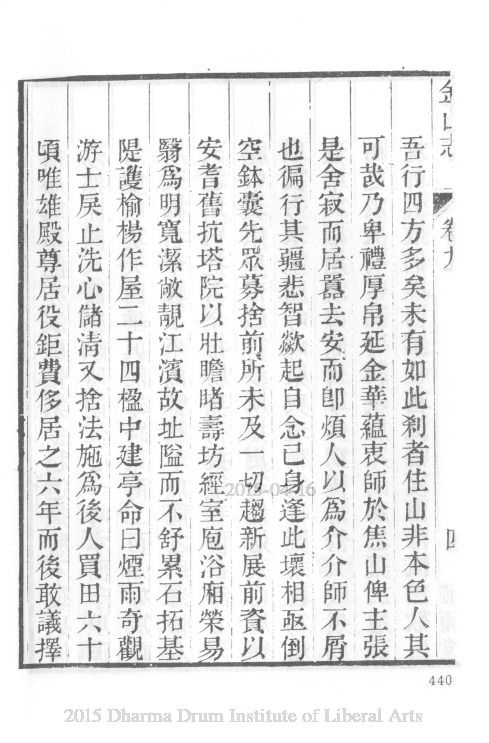 金山志 卷九 四
吾行四方多矣未有如此剎者住山非本色人其
可哉乃卑禮厚帛延金華蘊衷師於焦山俾主張
是舍寂而居囂去安而卽煩人以為介介師不屑
也徧行其疆悲智歘起自念已身逢此壞相亟倒
空鉢囊先眾募捨前所未及一切趨新展前資以
安耆舊抗塔院以壯瞻睹壽坊經室庖浴廂榮易
翳為明寬潔敞靚江濱故址隘而不舒累石拓基
隄護榆楊作屋二十四楹中建亭命曰煙雨奇觀
游士戾止洗心儲淸又捨法施為後人買田六十
頃唯雄殿尊居役鉅費侈居之六年而後敢議擇
2015-04-16
440
2015 Dharma Drum Institute of Liberal Arts